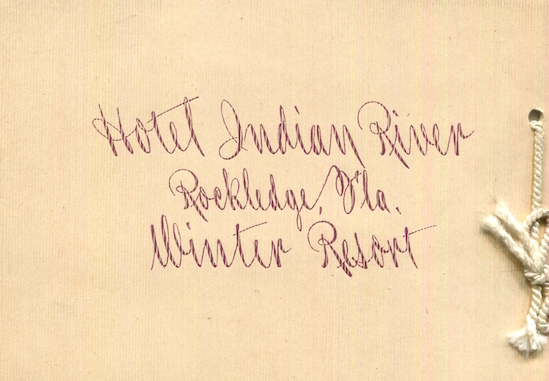 Hotel Indian River
Rockledge, Fla.
Winter Resort